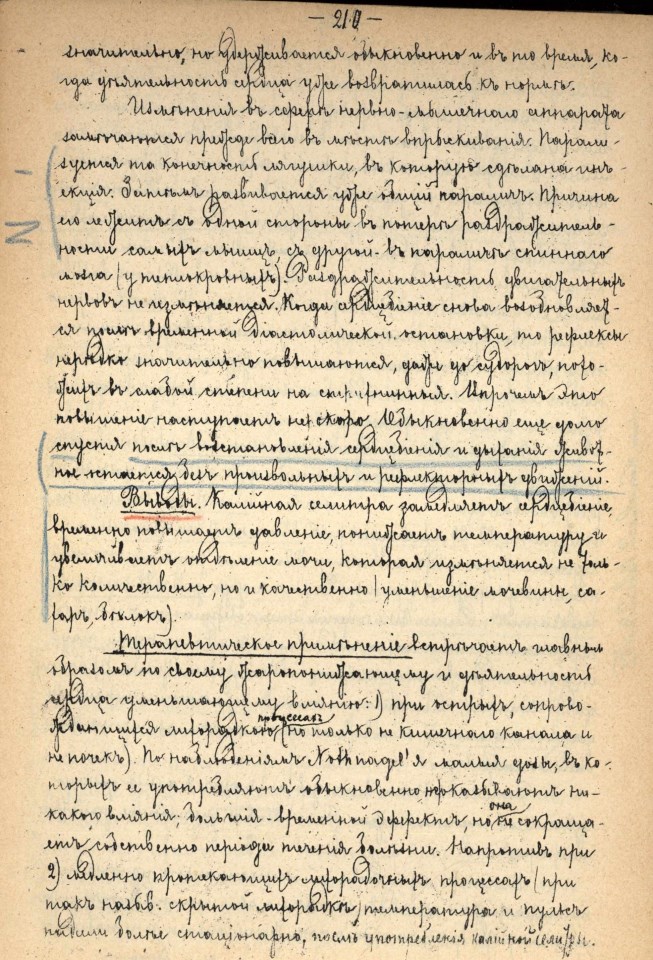 — 210 —
значительно, но удерживается обыкновенно и въ то время, ко-
гда дѣятельность сердца уже возвратилась къ нормѣ.
Измѣненія въ сферѣ нервно-мышечнаго аппарата
замѣчаются прежде всего въ мѣстѣ впрыскиванія. Парали-
зуется та конечность лягушки, въ которую сдѣлана инъ-
екція. Затѣмъ развивается уже общій параличъ. Причина
его лежитъ съ одной стороны въ потерѣ раздражитель-
ности самыхъ мышцъ, съ другой - въ параличѣ спиннаго
мозга (у теплокровныхъ). Раздражительность двигательныхъ
нервовъ не измѣняется. Когда сердцебіеніе снова возобновляет-
ся послѣ временной діастолической остановки, то рефлексы
нерѣдко значительно повышаются, даже до судорогъ, похо-
жихъ въ слабой степени на стрихнинныя. Впрочемъ это
повышеніе наступаетъ не скоро. Обыкновенно еще долго
спустя послѣ возстановленія сердцебіенія и дыханія живот-
ное остается безъ произвольныхъ и рефлекторныхъ движеній.
Выводы. Калійная селитра замедляетъ сердцебіеніе,
временно повышаетъ давленіе, понижаетъ температуру и
увеличиваетъ отдѣленіе мочи, которая измѣняется не толь-
ко количественно, но и качественно (уменьшеніе мочевины, са-
харъ, бѣлокъ).
Терапевтическое примѣненіе встрѣчаетъ главнымъ
образомъ по своему жаропонижающему и дѣятельность
сердца уменьшающему вліянію: 1) при острыхъ, сопрово-
ждающихся лихорадкою процессахъ (но только не кишечнаго канала и
не почекъ). По наблюденіямъ Nothnagel'я малыя дозы, въ ко-
торыхъ ее употребляютъ обыкновенно не оказываютъ ни-
какого вліянія; большія - временной эффектъ, но она не сокраща-
етъ собственно періода теченія болѣзни. Напротивъ при
2) медленно протекающихъ лихорадочныхъ процессахъ (при
такъ назыв. скрытой лихорадкѣ) температура и пульсъ
падали болѣе стаціонарно, послѣ употребленія калійной селитры.